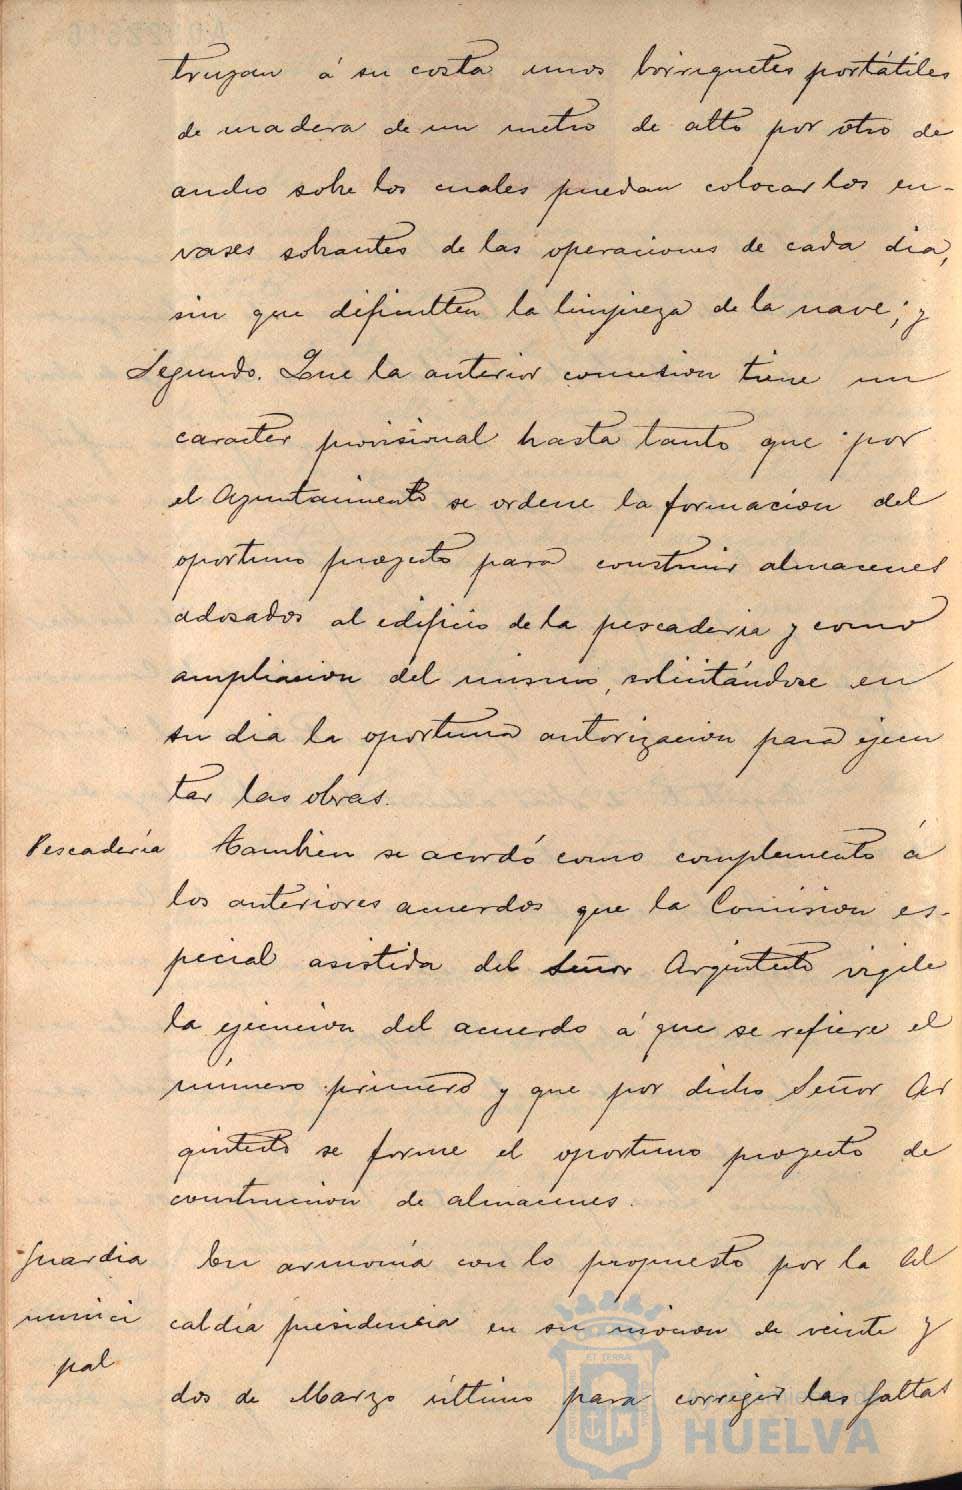 truyan á su costa unos borriquetes portátiles
de madera de un metro de alto por otro de
ancho sobre los cuales puedan colocar los en-
vases sobrantes de las operaciones de cada dia,
sin que dificulten la limpieza de la nave; y
Segundo. Que la anterior concesion tiene un
caracter provisional hasta tanto que por
el Ayuntamiento se ordene la formacion del
oportuno proyecto para construir almacenes
adosados al edificio de la pescaderia y como
ampliacion del mismo, solicitándose en
su dia la oportuna autorizacion para ejecu
tar las obras.
Pescadería Tambien se acordó como complemento á
los anteriores acuerdos que la Comision es-
pecial asistida del Señor Arquitecto vigile
la ejecucion del acuerdo á que se refiere el
número primero y que por dicho Señor Ar
quitecto se forme el oportuno proyecto de
construccion de almacenes.
Guardia En armonía con lo propuesto por la Al
munici caldía presidencia en su mocion de veinte y
pal
dos de Marzo último para corregir las faltas
ET TERRAE
HUELVA